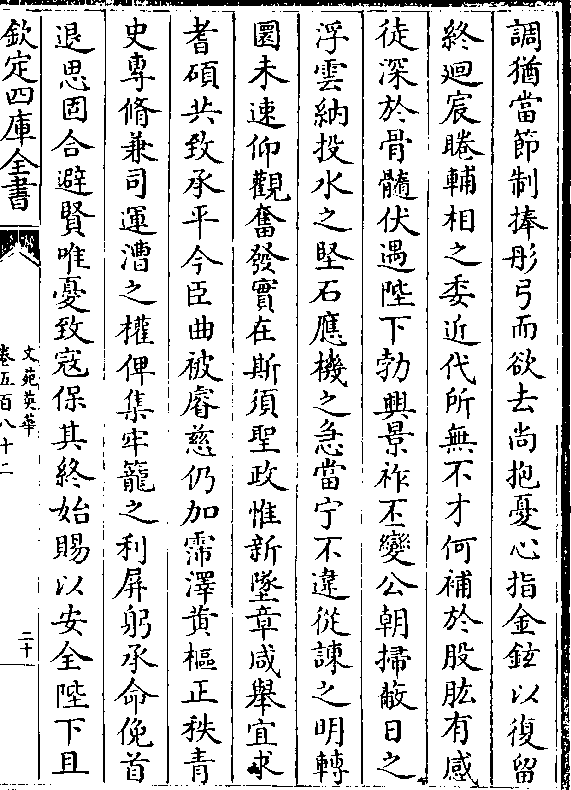 調猶當節制捧彤弓而欲去尚抱憂心指金鉉以復留
終迴宸睠輔相之委近代所無不才何補於股肱有感
徒深於骨髓伏遇陛下勃興景祚丕變公朝掃蔽日之
浮雲納投水之堅石應機之急當宁不違從諫之明轉
圜未速仰觀奮發實在斯須聖政惟新墜章咸舉宜求
耆碩共致承平今臣曲被睿慈仍加霈澤黃樞正秩青
史專脩兼司運漕之權俾集牢籠之利屏躬承命俛首
退思固合避賢唯憂致寇保其終始賜以安全陛下且
欽定四庫全書
文苑英華
卷五百八十二
二十